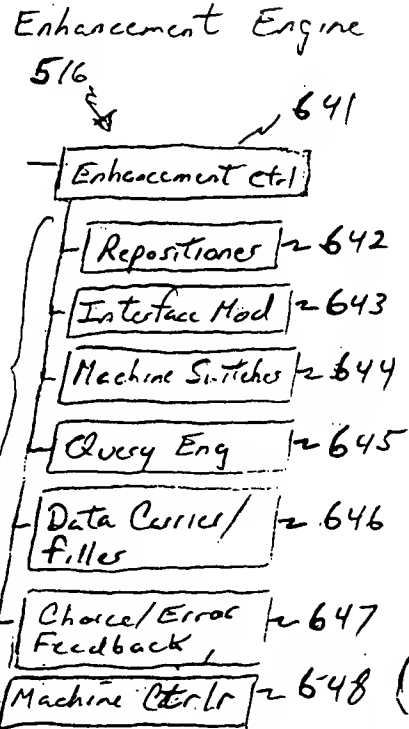 Enhancement Engine
516
641
Enhancement ctrl
Repositioner ~ 642
Interface Mod ~ 643
Machine Switcher ~ 644
Query Eng ~ 645
Data Carrier/ ~ 646
filler
Choice/Error ~ 647
Feedback
Machine Ctrlr ~ 648 (